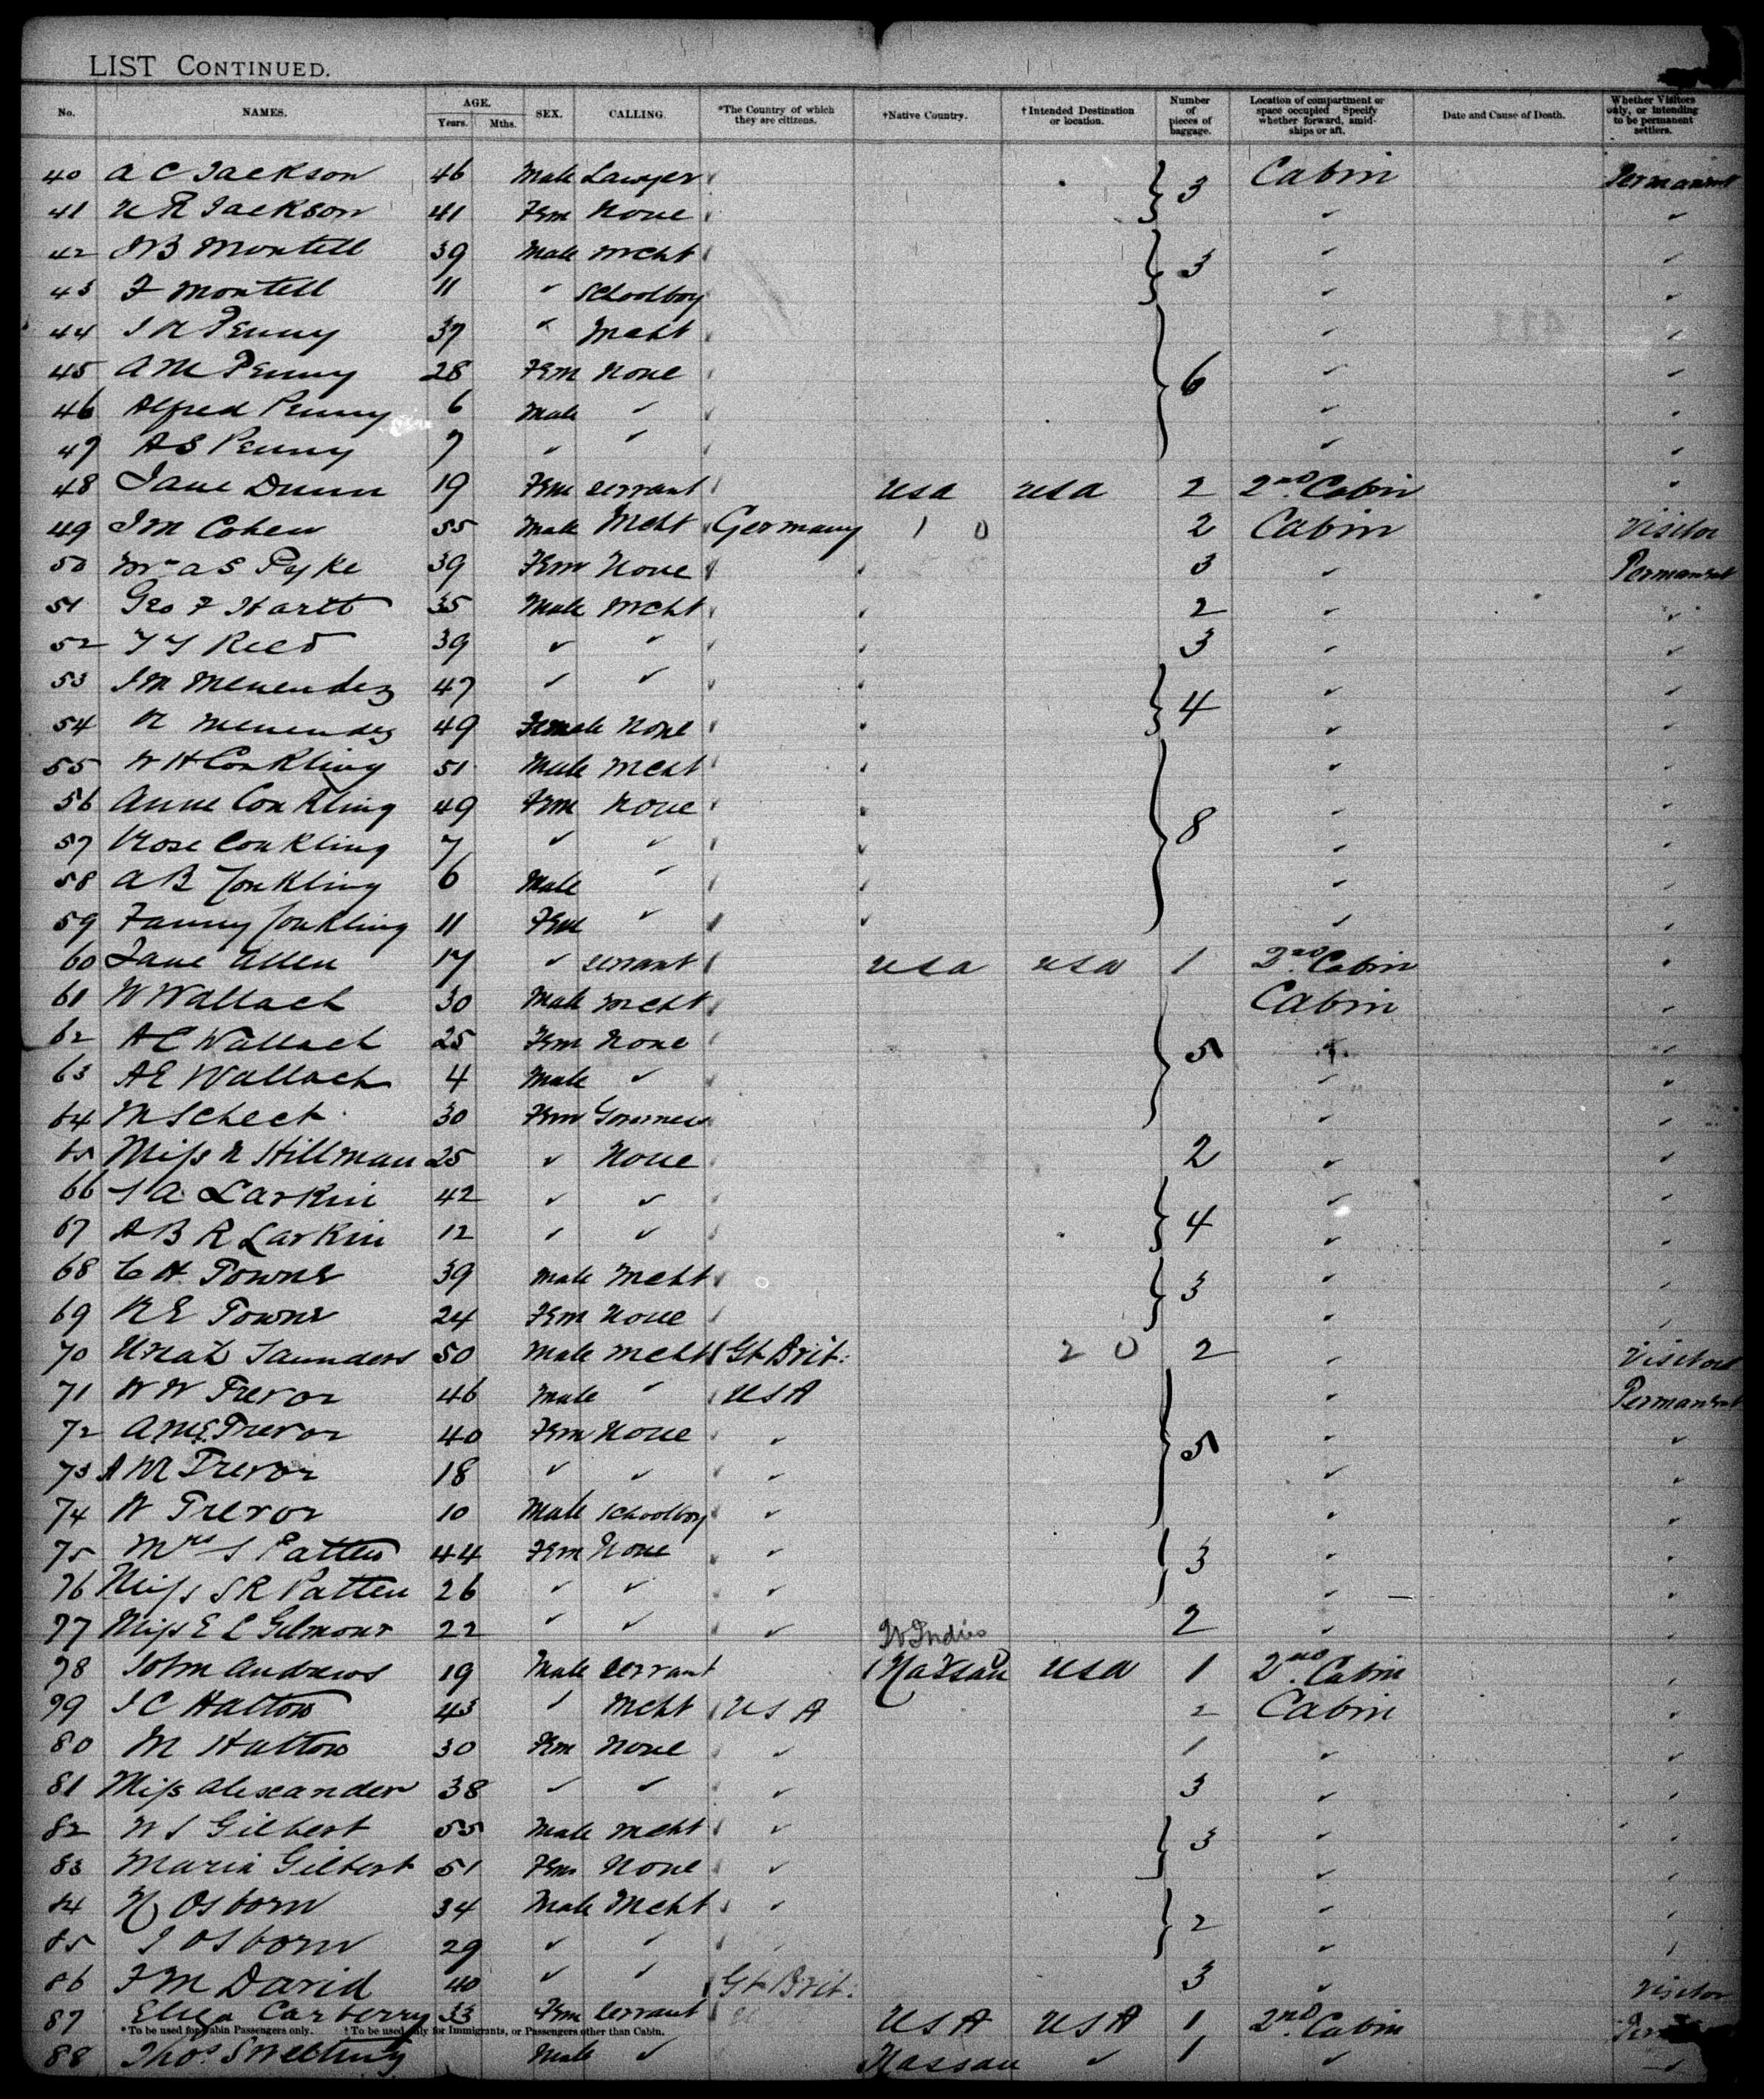 LIST CONTINUED.
No. NAMES. AGE. Years. Mths. SEX. CALLING. *The Country of which they are citizens. †Native Country. †Intended Destination or location. Number of pieces of baggage. Location of compartment or space occupied Specify whether forward, amidships or aft. Date and Cause of Death. Whether Visitors only, or intending to be permanent settlers.
40 A C Jackson 46 Male Lawyer } 3 Cabin Permanent
41 N R Jackson 41 Fem None ✓ ✓
42 B Montell 39 Male Mcht } 3 ✓ ✓
43 F Montell 11 ✓ Schoolboy ✓ ✓
44 Penny 37 ✓ Mcht ✓ ✓
45 A M Penny 28 Fem None } 6 ✓ ✓
46 Alfred Penny 6 Male ✓ ✓ ✓
47 A S Penny 7 ✓ ✓ ✓ ✓
48 Jane Dunn 19 Fem servant USA USA 2 2nd Cabin ✓
49 J M Cohen 55 Male Mcht Germany 1 0 2 Cabin Visitor
50 Mrs A S Pyke 39 Fem None 3 ✓ Permanent
51 Geo F Hartt 35 Male Mcht 2 ✓ ✓
52 Reed 39 ✓ ✓ 3 ✓ ✓
53 J M Menendez 47 ✓ ✓ } 4 ✓ ✓
54 Menendez 49 Female None ✓ ✓
55 W H Conkling 51 Male Mcht ✓ ✓
56 Anne Conkling 49 Fem None } 8 ✓ ✓
57 Rose Conkling 7 ✓ ✓ ✓ ✓
58 A B Conkling 6 Male ✓ ✓ ✓
59 Fanny Conkling 11 Fem ✓ ✓ ✓
60 Jane Allen 17 ✓ servant USA USA 1 2nd Cabin ✓
61 W Wallach 30 Male Mcht Cabin ✓
62 A C Wallach 25 Fem None } 5 ✓ ✓
63 A E Wallach 4 Male ✓ ✓ ✓
64 M Scheet 30 Fem Governess ✓ ✓
65 Miss N Hillman 25 ✓ None 2 ✓ ✓
66 A Larkin 42 ✓ ✓ } 4 ✓ ✓
67 A B R Larkin 12 ✓ ✓ ✓ ✓
68 C H Towne 39 Male Mcht } 3 ✓ ✓
69 R E Towne 24 Fem None ✓ ✓
70 Saunders 50 Male Mcht Gt Brit: 2 0 2 ✓ Visitor
71 W W Trevor 46 Male ✓ USA ✓ Permanent
72 A M E Trevor 40 Fem None ✓ } 5 ✓ ✓
73 A M Trevor 18 ✓ ✓ ✓ ✓ ✓
74 W Trevor 10 Male Schoolboy ✓ ✓ ✓
75 Mrs S Patten 44 Fem None ✓ } 3 ✓ ✓
76 Miss S R Patten 26 ✓ ✓ ✓ ✓ ✓
77 Miss E L Gilmour 22 ✓ ✓ ✓ 2 ✓ ✓
W Indies
78 John Andrews 19 Male servant Nassau USA 1 2nd Cabin ✓
79 J C Hatton 43 ✓ Mcht USA 2 Cabin ✓
80 M Hatton 30 Fem None ✓ 1 ✓ ✓
81 Miss Alexander 38 ✓ ✓ ✓ 3 ✓ ✓
82 W S Gilbert 55 Male Mcht ✓ } 3 ✓ ✓
83 Maria Gilbert 51 Fem None ✓ ✓ ✓
84 Osborn 34 Male Mcht ✓ } 2 ✓ ✓
85 J Osborn 29 ✓ ✓ ✓ ✓ ✓
86 F M David 40 ✓ ✓ Gt Brit: 3 ✓ Visitor
87 Eliza Carberry 33 Fem servant USA USA 1 2nd Cabin
*To be used for Cabin Passengers only. †To be used only for Immigrants, or Passengers other than Cabin.
88 Thos Sweeting Male ✓ Nassau ✓ 1 ✓ ✓